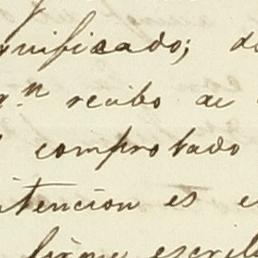 gnificado; de
qº.n recibo de
comprobado
itencion es e
firme escrib